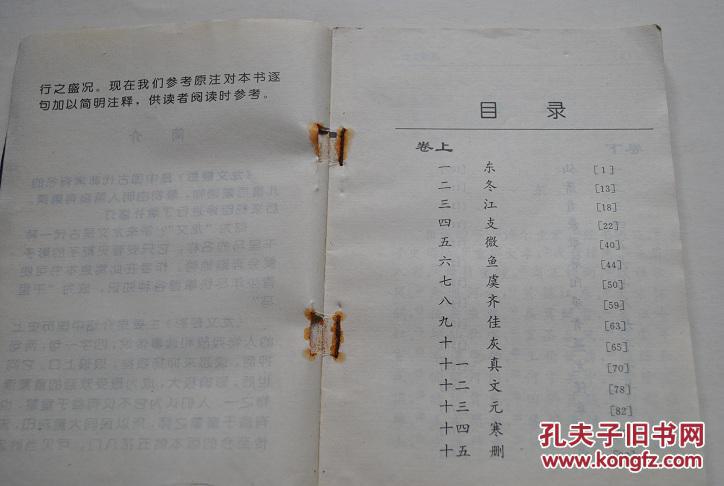 行之盛况。现在我们参考原注对本书逐
句加以简明注释，供读者阅读时参考。
目 录
卷上
一 东 [1]
二 冬 [13]
三 江 [18]
四 支 [22]
五 微 [40]
六 鱼 [44]
七 虞 [50]
八 齐 [59]
九 佳 [63]
十 灰 [65]
十一 真 [70]
十二 文 [78]
十三 元 [82]
十四 寒
十五 删
孔夫子旧书网
www.kongfz.com